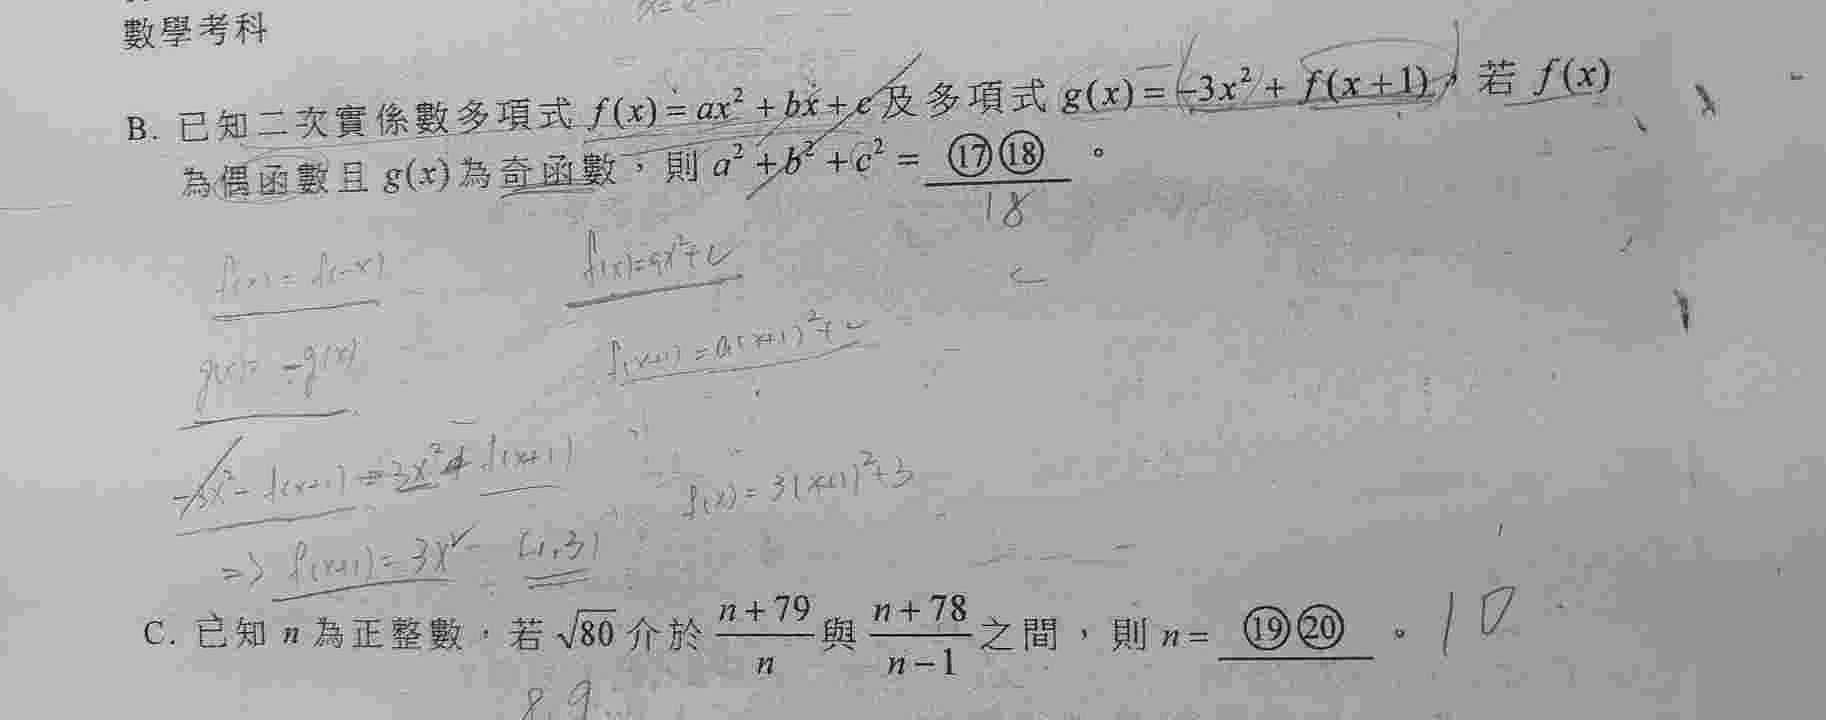 數學考科
B. 已知二次實係數多項式 f(x) = ax² + bx + c 及多項式 g(x) = -3x² + f(x+1), 若 f(x)
為偶函數且 g(x) 為奇函數, 則 a² + b² + c² = ⑰⑱ 。
18
f(x) = f(-x) f(x)=ax²+c
c
g(x)= -g(x) f(x+1) = a(x+1)²+c
-3x² - f(x+1) = 3x² + f(x+1)
f(x) = 3(x+1)²+3
=> f(x+1) = 3x² (1,3)
C. 已知 n 為正整數, 若 √80 介於 (n+79)/n 與 (n+78)/(n-1) 之間, 則 n = ⑲⑳ 。 10
8.9